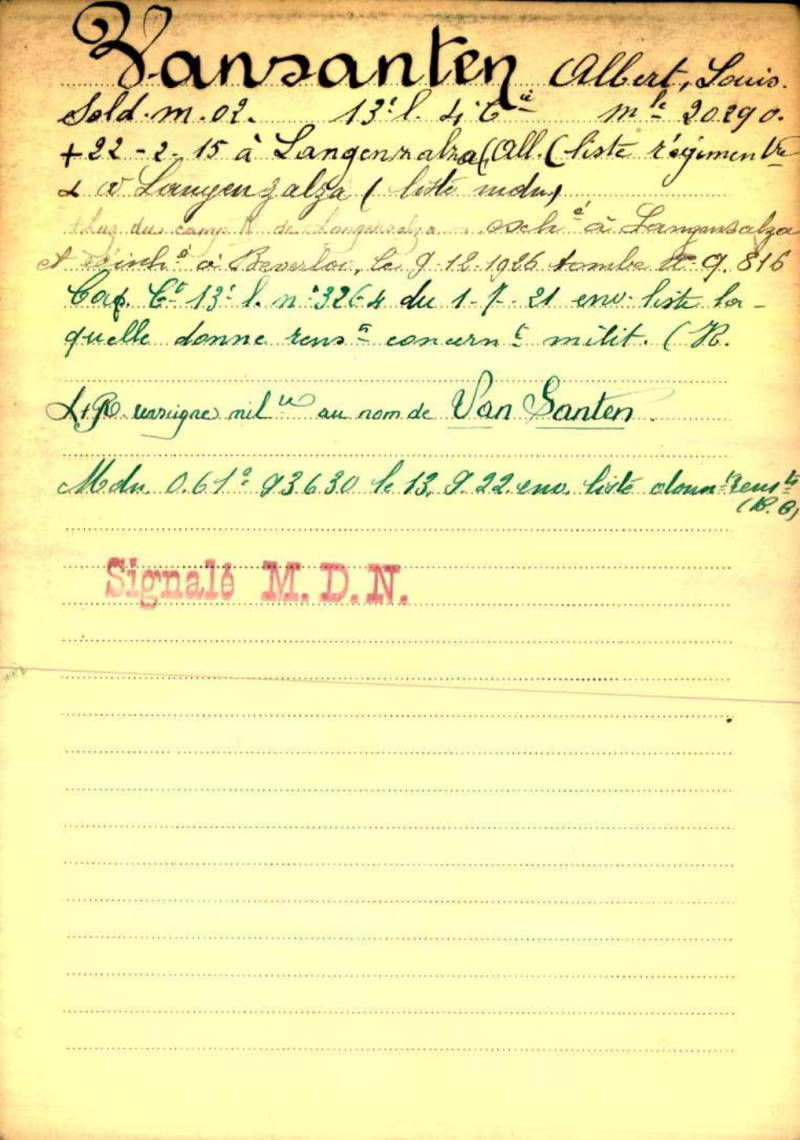 Vansanten Albert, Louis.
Sold. m. 02. 13e l. 4e Cie mle 20290.
+ 22-2-15 à Langenzalza (All. (liste régimentre
à Langenzalza (liste mdn)
du camp de Langensalza à Langensalza
et à Beverloo, le 9-12-1926 tombe No 9. 816
13e l. n° 3264 du 1-7-21 env. liste la-
quelle donne rensts concernt milit. (R.
au nom de Van Santen.
Mdn. 061a 93630 le 13.9.22 env. liste donnt rensts
(R. B)
Signalé M.D.N.